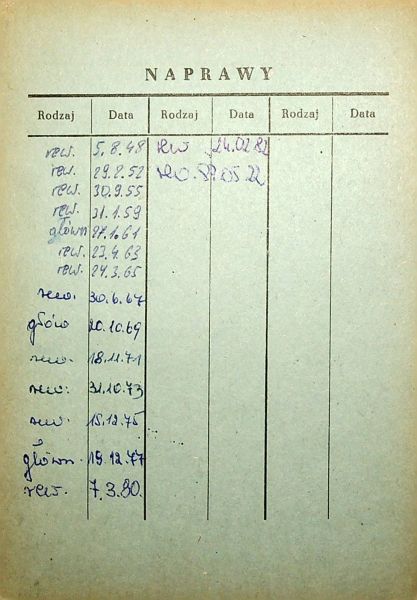 NAPRAWY
Rodzaj Data Rodzaj Data Rodzaj Data
rew. 5.8.48 rew 24.02.82
rew. 29.2.52 rew.
rew. 30.9.55
rew. 31.1.59
główn 27.1.61
rew. 23.4.63
rew. 24.3.65
rew. 30.6.67
głów 20.10.69
rew. 18.11.71
rew. 31.10.73
rew. 15.12.75
główn. 19.12.77
rew. 7.3.80.